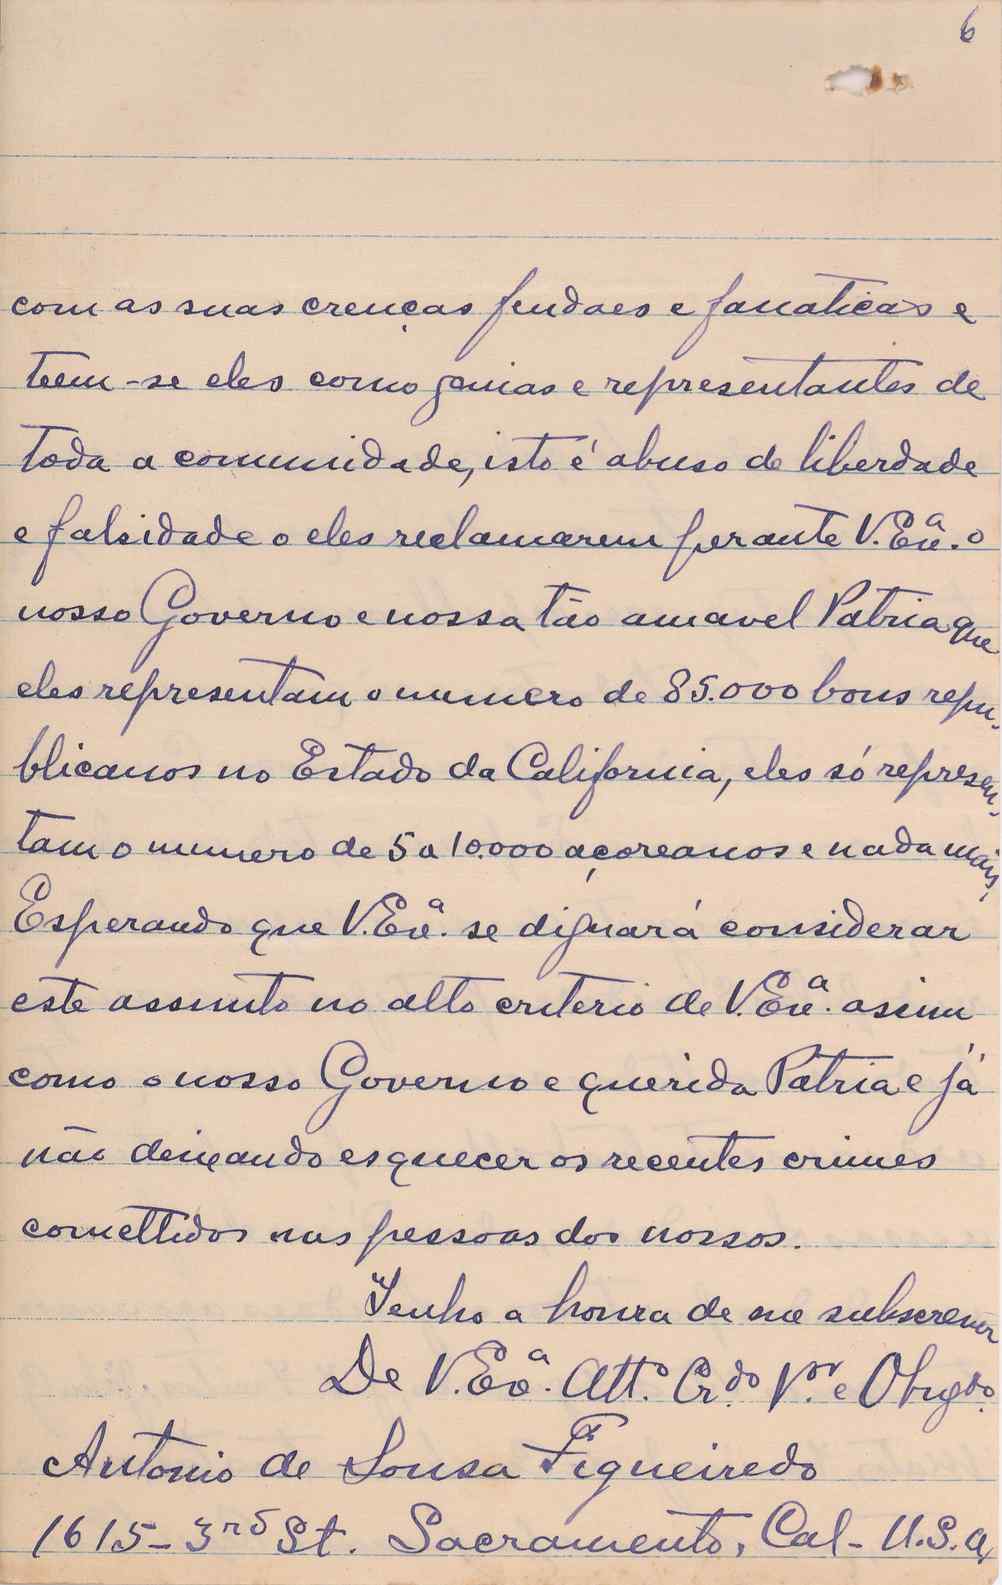 6
com as suas crenças feudaes e fanaticas e
teem-se eles como genias e representantes de
toda a comunidade, isto é abuso de liberdade
e falsidade o eles reclamarem perante V. Exª. o
nosso Governo e nossa tão amavel Patria que
eles representam o numero de 85.000 bons repu-
blicanos no Estado da California, eles só represen-
tam o numero de 5 a 10.000 açoreanos e nada mais,
Esperando que V. Exª. se dignará considerar
este assunto no alto criterio de V. Exª. assim
como o nosso Governo e querida Patria e já
não deixando esquecer os recentes crimes
comettidos nas pessoas dos nossos.
Tenho a honra de me subscrever
De V. Exª. Attº. Crdo. Vor. e Obrgdo.
Antonio de Sousa Figueiredo
1615 - 3rd St. Sacramento, Cal - U.S.A.